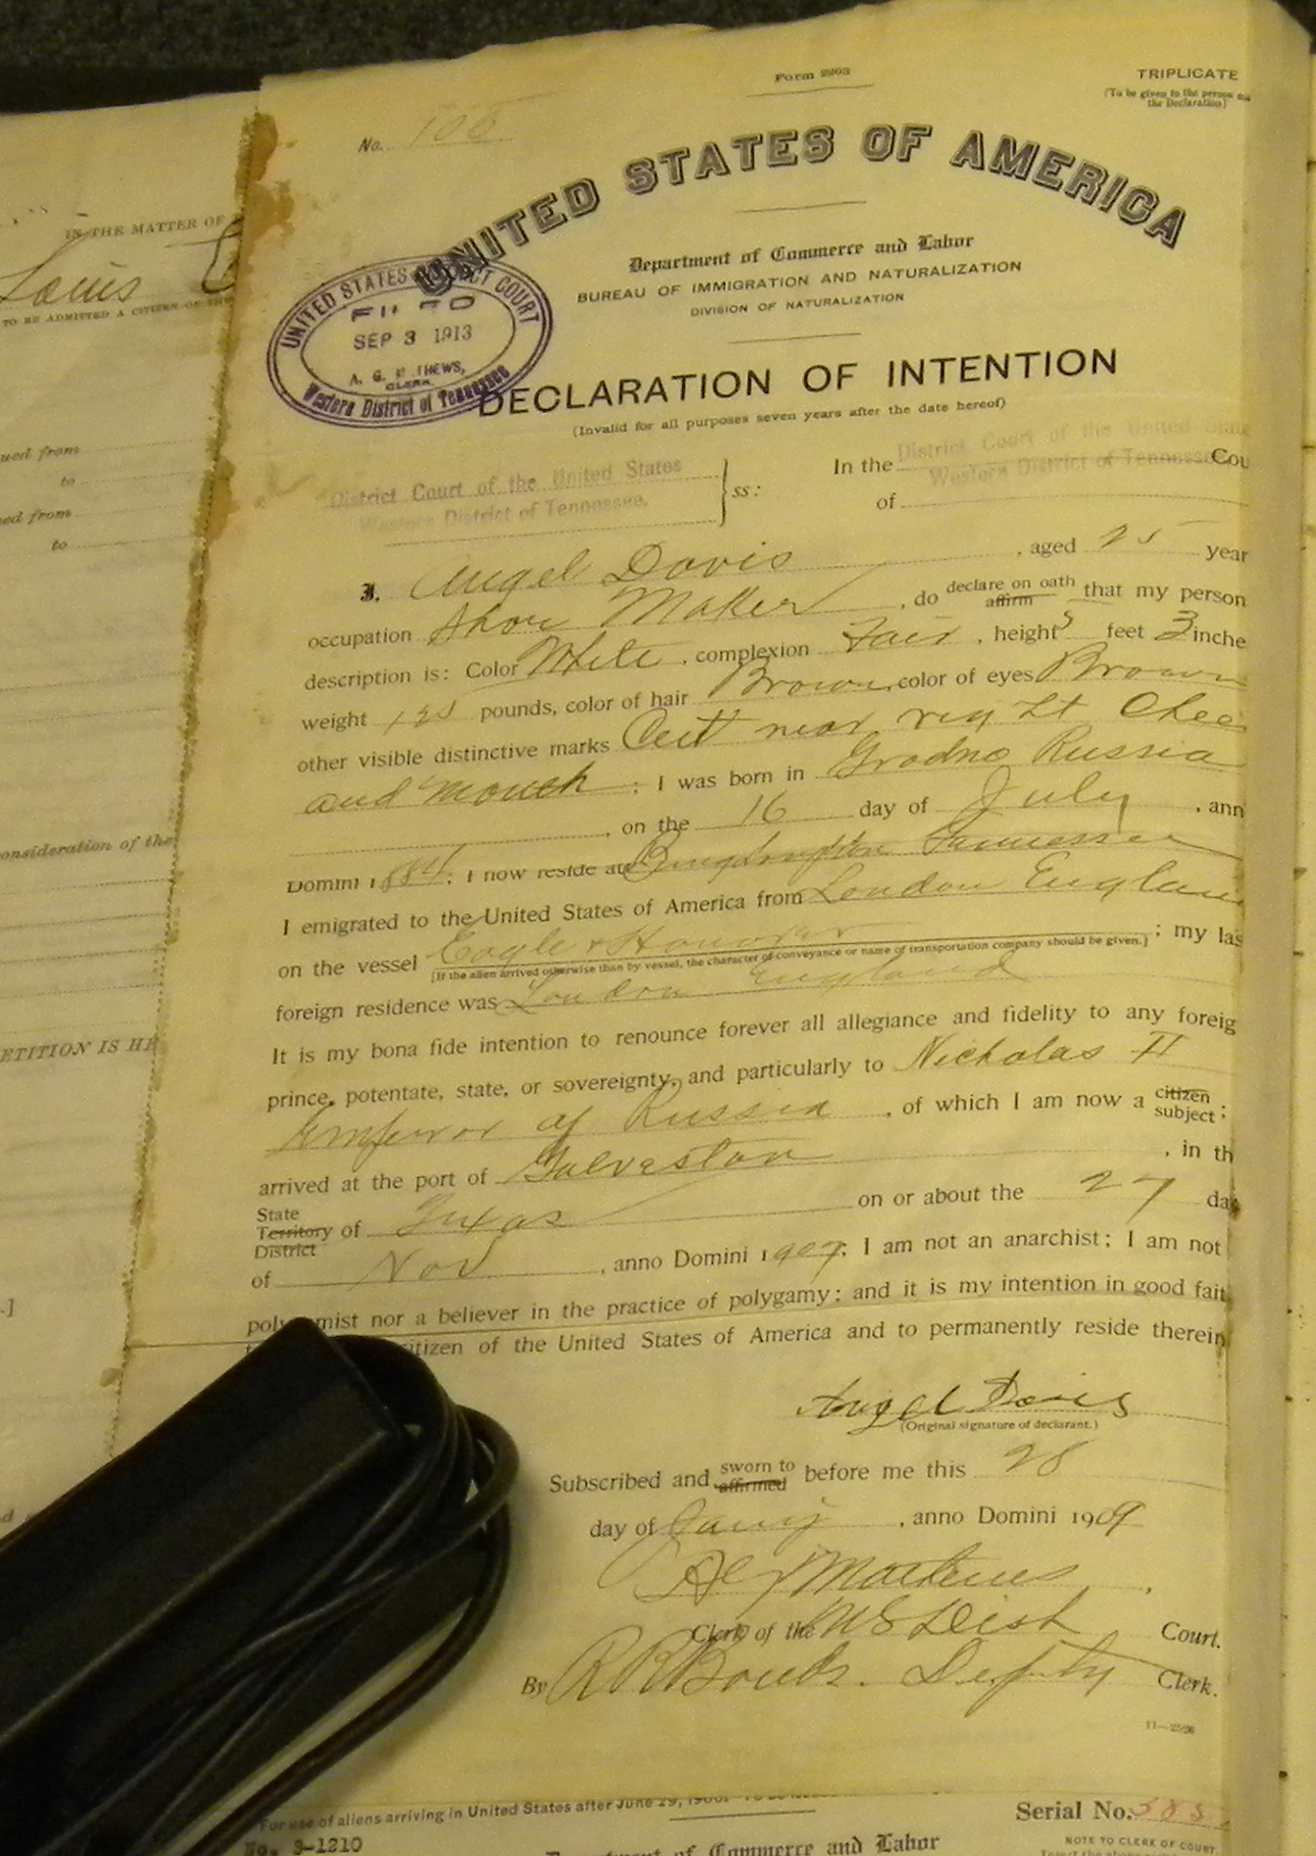 Form 2203
TRIPLICATE
(To be given to the person
the Declaration)
No. 106
UNITED STATES OF AMERICA
Department of Commerce and Labor
BUREAU OF IMMIGRATION AND NATURALIZATION
DIVISION OF NATURALIZATION
UNITED STATES COURT
SEP 3 1913
A. G.
CLERK
Western District of Tennessee
DECLARATION OF INTENTION
(Invalid for all purposes seven years after the date hereof)
District Court of the United States
Western District of Tennessee.
ss:
In the District Court of the United State
Western District of Tennessee Cou
of
I, Angel Davis, aged 25 year
occupation Shoe Maker, do declare on oath affirm that my person
description is: Color White, complexion Fair, height 5 feet 3 inche
weight pounds, color of hair Brown, color of eyes Brown
other visible distinctive marks Cut near right Chee
and mouth; I was born in Grodno Russia
, on the 16 day of July, ann
Domini 1884; I now reside at
I emigrated to the United States of America from London England
on the vessel Eagle ; my las
[If the alien arrived otherwise than by vessel, the character of conveyance or name of transportation company should be given.]
foreign residence was London England
It is my bona fide intention to renounce forever all allegiance and fidelity to any foreig
prince, potentate, state, or sovereignty, and particularly to Nicholas II
Emperor of Russia, of which I am now a citizen subject;
arrived at the port of Galveston, in th
State Territory District of Texas on or about the 27 da
of Nov, anno Domini 1907; I am not an anarchist; I am not
mist nor a believer in the practice of polygamy; and it is my intention in good fait
citizen of the United States of America and to permanently reside therein
Angel Davis
(Original signature of declarant.)
Subscribed and sworn to affirmed before me this 28
day of , anno Domini 1909
Clerk of the US Dist Court.
By Deputy Clerk.
11—2526
For use of aliens arriving in United States after June 29,
No. 3-1210
Department of Commerce and Labor
Serial No.
NOTE TO CLERK OF COURT
IN THE MATTER OF
Louis
TO BE ADMITTED A CITIZEN OF THE
ued from
to
ed from
to
onsideration of the
ETITION IS HE